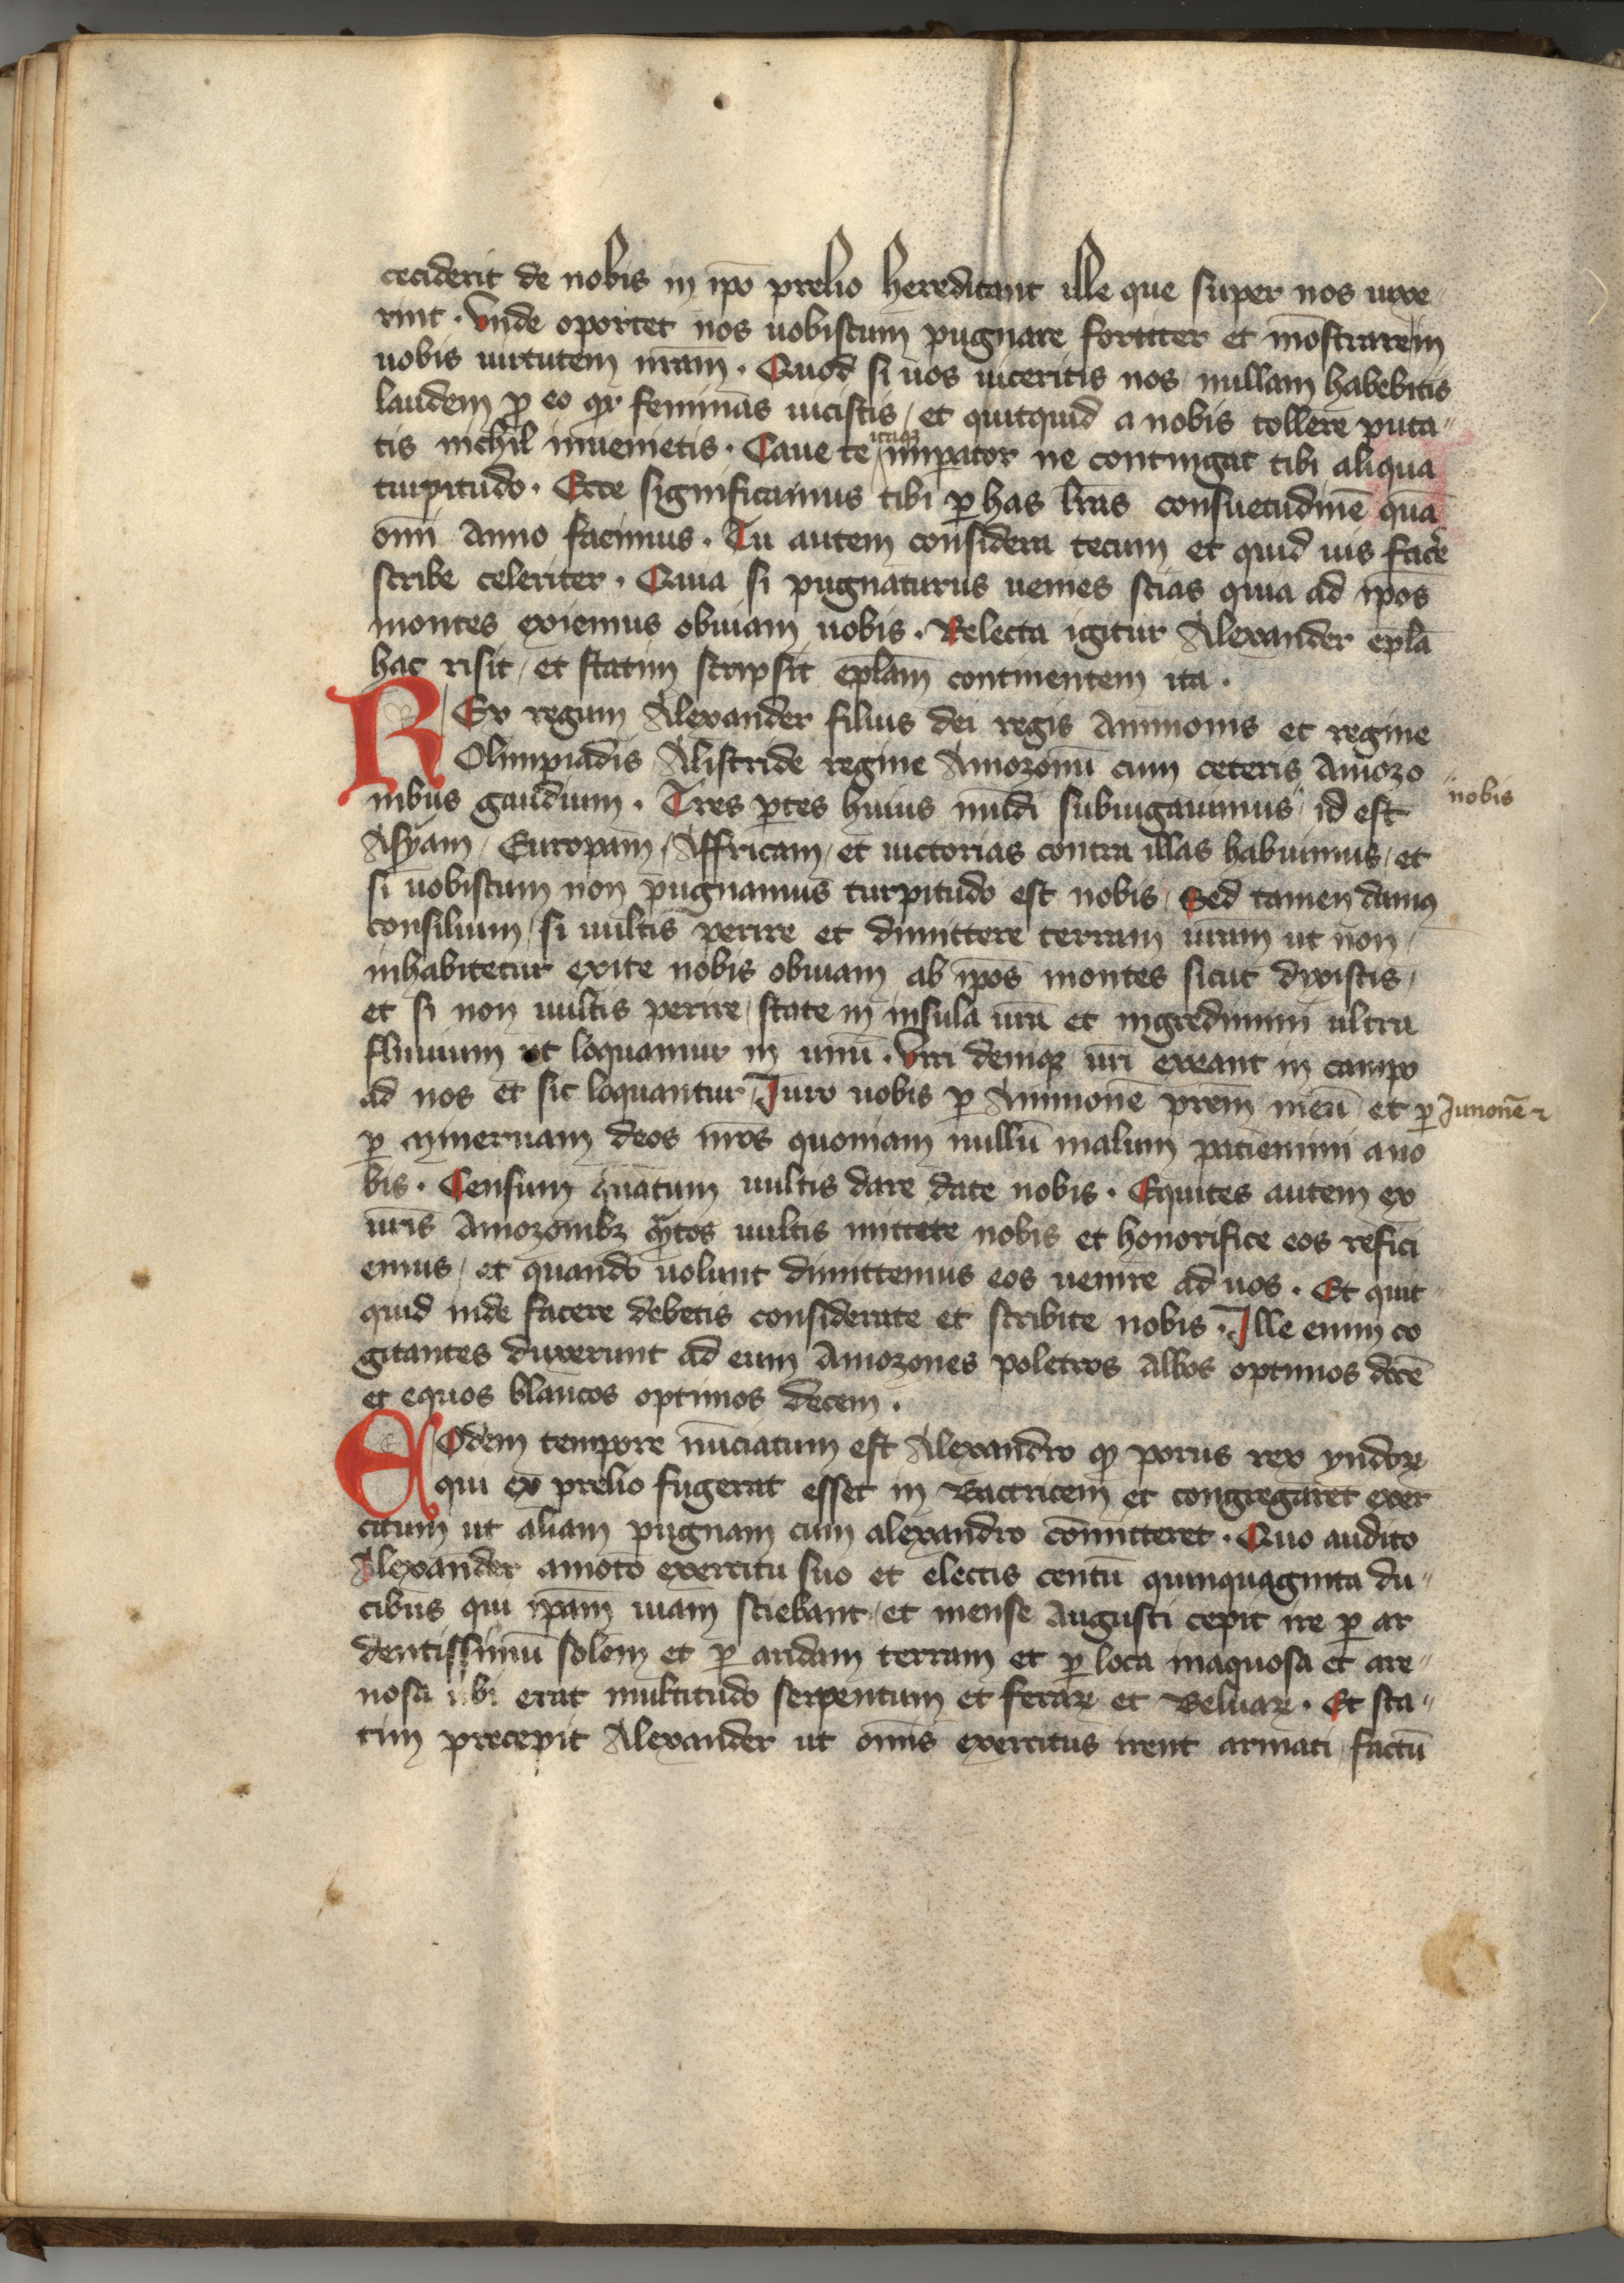 ceciderit de nobis in ip̄o prelio hereditant ille que super nos uixe
rint . Vnde oportet nos uobiscum pugnare fortiter et mōstrarem
uobis uirtutem nr̄am . Quod si uos uiceritis nos nullam habebitis
laudem ꝓ eo qr feminas uicistis / et quitquid a nobis tollere puta
tis nichil inuenietis . Caue te itaqꝫ imꝑator ne contingat tibi aliqua
turpitudo . Ecce significamus tibi ꝑ has lr̄as consuetudinē quā
om̄i anno facimus . Tu autem considera tecum et quid uis facere
scribe celeriter . Quia si pugnaturus uenies scias quia ad ip̄os
montes exiemus obuiam uobis . Relecta igitur Alexander epl̄a
hac risit / et statim scripsit epl̄am continentem ita .
REx regum Alexander filius dei regis Ammonis et regine
Olimpiadis Alistride regine Amozonū cum ceteris Amozo
nibus gaudium . Tres ꝑtes huius mūdi subiugauimus id est
nobis
Asyam / Europam / Affricam / et uictorias contra illas habuimus / et
si uobiscum non pugnamus turpitudo est nobis / Sed tamen damꝰ
consilium / si uultis perire et dimittere terram ur̄am ut non
inhabitetur exite nobis obuiam ab ip̄os montes sicut dixistis /
et si non uultis perire / state in insula ur̄a et ingredimini ultra
fluuium ut loquamur in unū . Viri deniqꝫ ur̄i exeant in campo
ad nos et sic loquantur / Iuro uobis ꝑ Ammonē pr̄em meū et ꝑ Iunonē ⁊
ꝑ mineruam deos nr̄os quoniam nullū malum patiemini a no
bis . Censum quātum uultis dare date nobis . Equites autem ex
ur̄is Amozonibꝫ qͣtos uultis mittete nobis et honorifice eos refici
emus / et quando uolunt dimittemus eos uenire ad uos . Et quit
quid inde facere debetis considerate et scribite nobis . Ille enim co
gitantes duxerunt ad eum Amozones poletros albos optimos decē
et equos blancos optimos decem .
EOdem tempore nūciatum est Alexandro qꝫ porus rex yndoꝝ
qui ex prelio fugerat esset in Bactricem et congregaret exer
citum ut aliam pugnam cum alexandro cōmitteret . Quo audito
Alexander amoto exercitu suo et electis centū quinquaginta du
cibus qui ip̄am uiam sciebant / et mense Augusti cepit ire ꝑ ar
dentissimū solem et ꝑ aridam terram et ꝑ loca inaquosa et are
nosa ubi erat multitudo serpentum et feraꝝ et Beluaꝝ . Et sta
tim precepit Alexander ut om̄is exercitus irent armati / factū